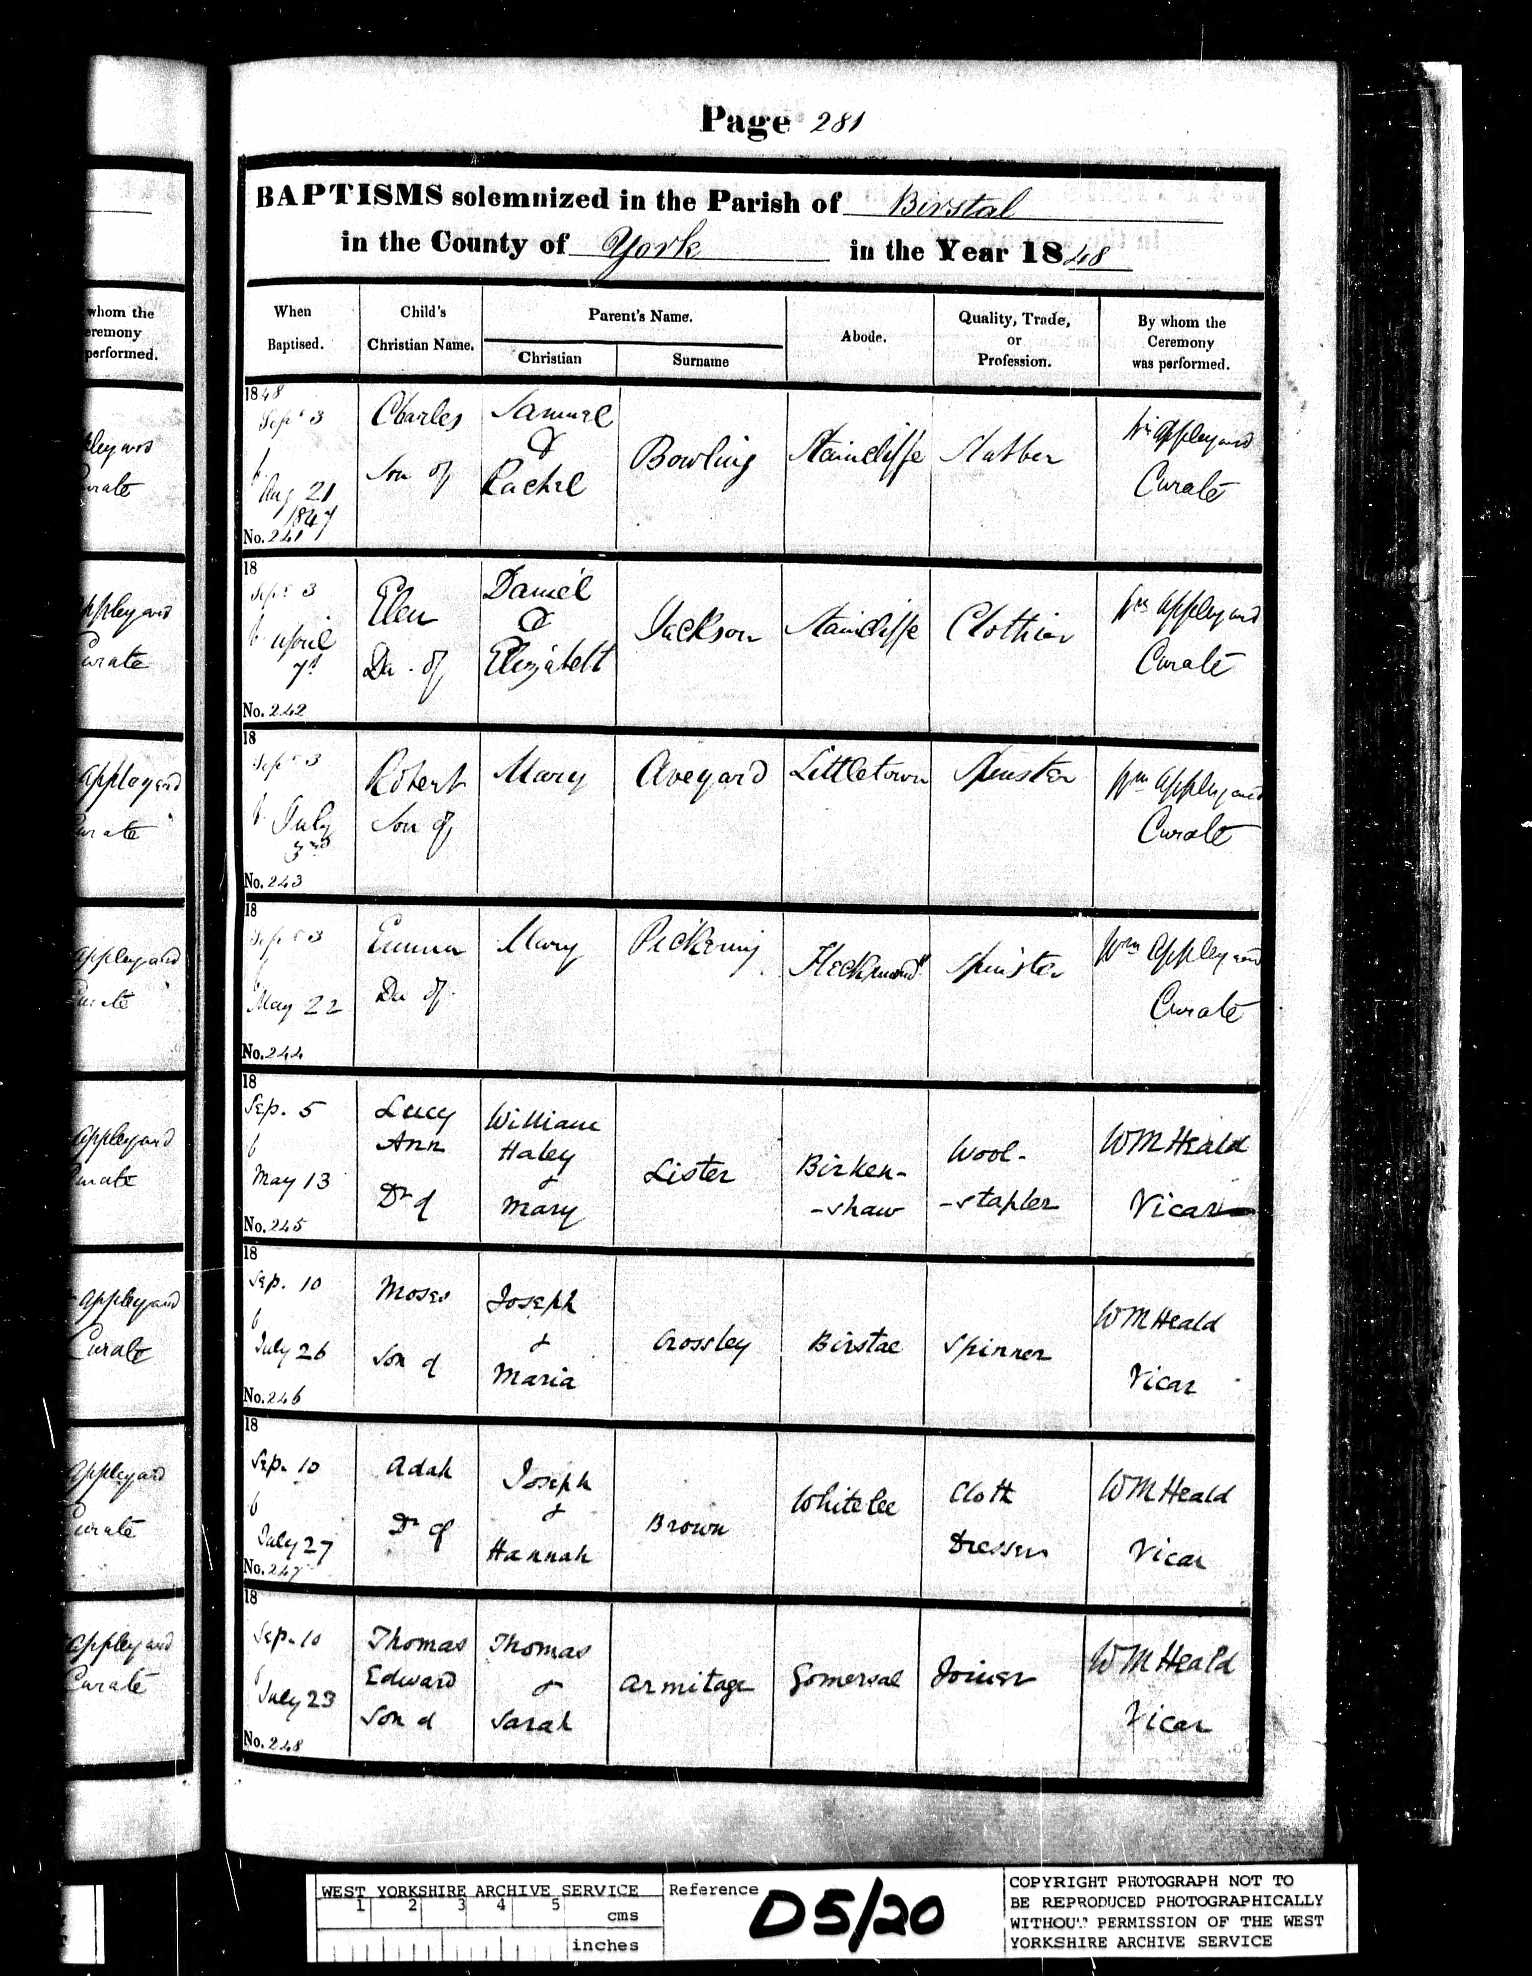 Page 281
BAPTISMS solemnized in the Parish of Birstal
in the County of York in the Year 1848
whom the
eremony
performed.
When
Baptised.
Child's
Christian Name.
Parent's Name.
Christian
Surname
Abode.
Quality, Trade,
or
Profession.
By whom the
Ceremony
was performed.
1848
Sept 3
b
Aug 21
1847
No. 241
Charles
Son of
Samuel
&
Rachel
Bowling
Staincliffe
Wm Appleyard
Curate
18
Sept 3
b April
No. 242
Elen
Da. of
Daniel
&
Elizabeth
Jackson
Staincliffe
Clothier
Wm Appleyard
Curate
18
Sept 3
b July
3rd
No. 243
Robert
Son of
Mary
Aveyard
Littletown
Spinster
Wm Appleyard
Curate
18
Sept 3
b
May 22
No. 244
Emma
Da of
Mary
Pickering
Heckmond
Spinster
Wm Appleyard
Curate
18
Sep. 5
b
May 13
No. 245
Lucy
Ann
Dr of
William
Haley
&
Mary
Lister
Birken-
-shaw
Wool-
-stapler
WM Heald
Vicar
18
Sep. 10
b
July 26
No. 246
Moses
Son of
Joseph
&
Maria
Crossley
Birstal
Spinner
WM Heald
Vicar
18
Sep. 10
b
July 27
No. 247
Adah
Dr of
Joseph
&
Hannah
Brown
Whitelee
Cloth
Dresser
WM Heald
Vicar
18
Sep. 10
b
July 23
No. 248
Thomas
Edward
Son of
Thomas
&
Sarah
Armitage
Gomersal
Joiner
WM Heald
Vicar
WEST YORKSHIRE ARCHIVE SERVICE
1 2 3 4 5
cms
inches
Reference
D5/20
COPYRIGHT PHOTOGRAPH NOT TO
BE REPRODUCED PHOTOGRAPHICALLY
WITHOUT PERMISSION OF THE WEST
YORKSHIRE ARCHIVE SERVICE